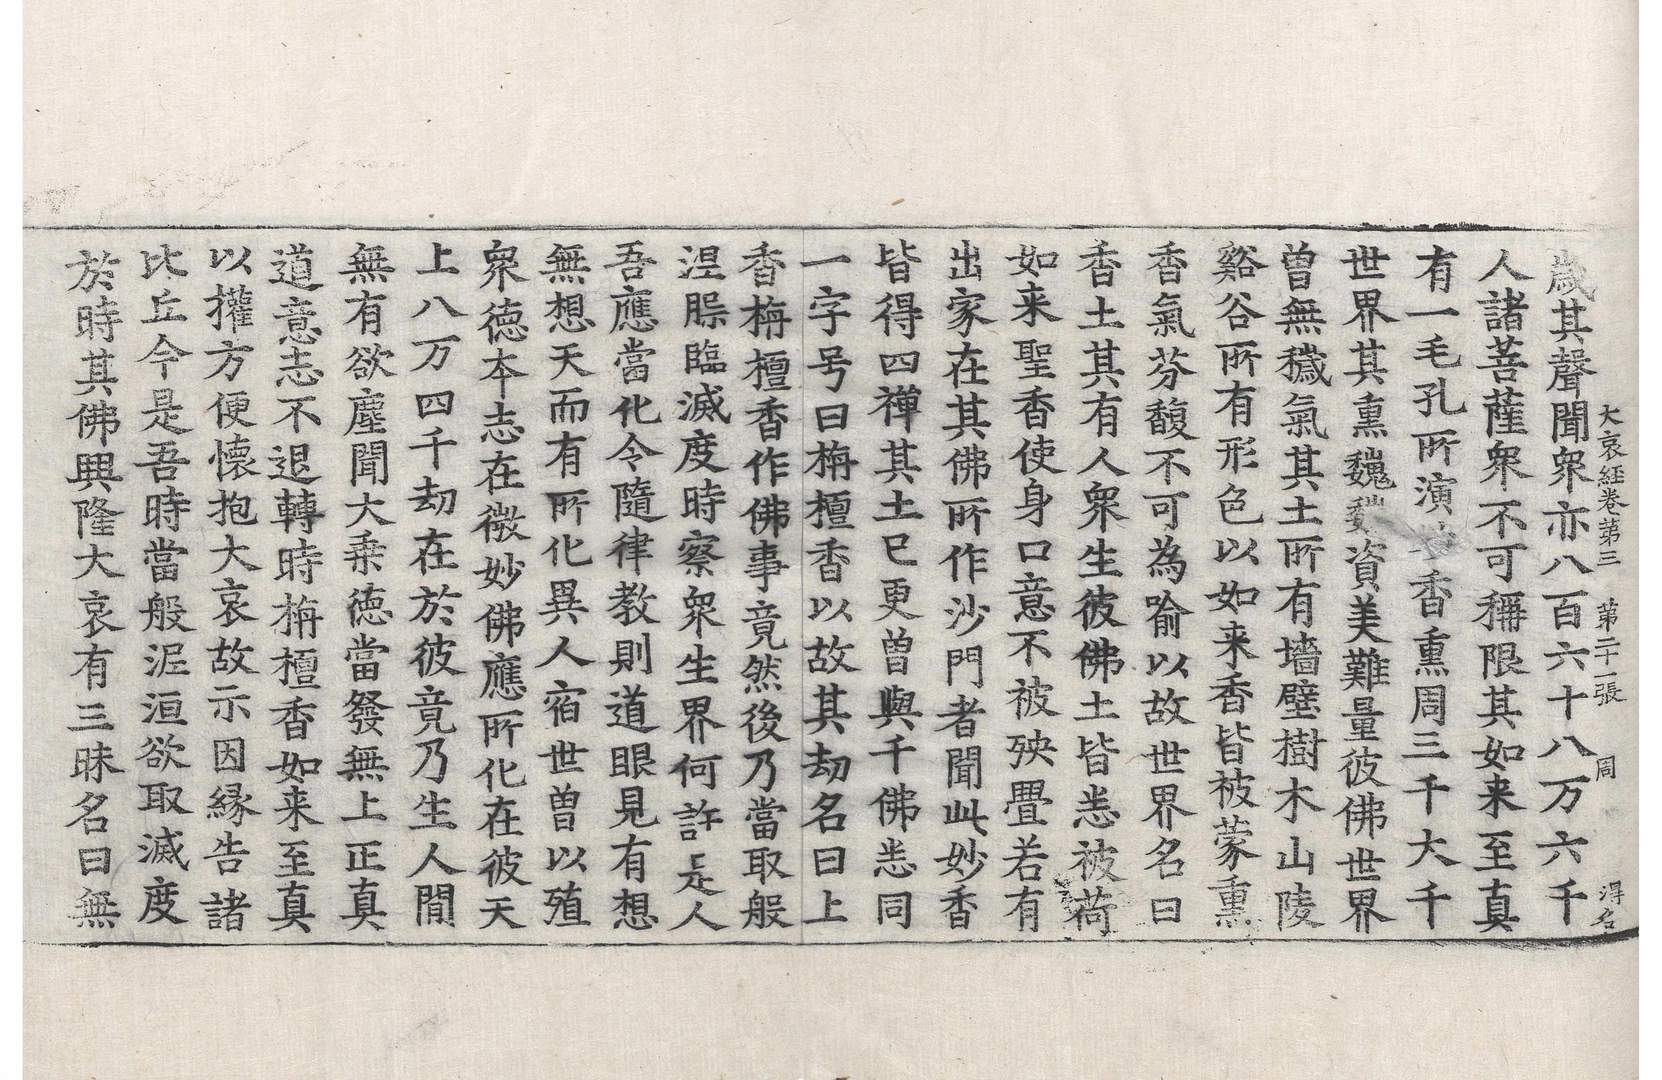 大哀經卷第三　第二十一張　周　得名
歲其聲聞衆亦八百六十八万六千
人諸菩薩衆不可稱限其如来至真
有一毛孔所演香熏周三千大千
世界其熏巍巍資美難量彼佛世界
曽無穢氣其土所有墻壁樹木山陵
谿谷所有形色以如来香皆被蒙熏
香氣芬馥不可為喻以故世界名曰
香土其有人衆生彼佛土皆悉被荷
如来聖香使身口意不被殃疊若有
出家在其佛所作沙門者聞此妙香
皆得四禅其土已更曽與千佛悉同
一字号曰栴檀香以故其劫名曰上
香栴檀香作佛事竟然後乃當取般
涅槃臨滅度時察衆生界何許是人
吾應當化令隨律教則道眼見有想
無想天而有所化異人宿世曽以殖
衆徳夲志在微妙佛應所化在彼天
上八万四千劫在於彼竟乃生人間
無有欲塵聞大乗徳當發無上正真
道意志不退轉時栴檀香如来至真
以權方便懷抱大哀故示因縁告諸
比丘今是吾時當般泥洹欲取滅度
於時其佛興隆大哀有三昧名曰無